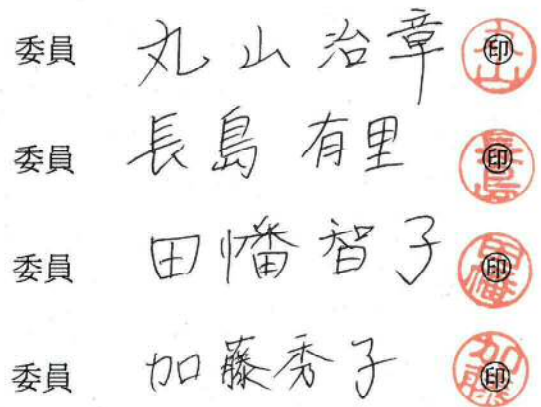 委員 丸山治章 ㊞
委員 長島有里 ㊞
委員 田幡智子 ㊞
委員 加藤秀子 ㊞